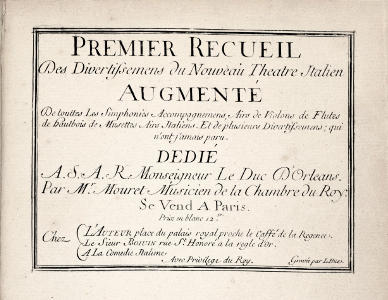 PREMIER RECUEIL
Des Divertissemens du Nouveau Theatre Italien
AUGMENTÉ
De touttes Les Simphonies Accompagnemens, Airs de Violons de Flutes
de hautbois de Musettes Airs Italiens. Et de plusieurs Divertissemens; qui
n'ont jamais paru.
DEDIÉ
A.S.A.R Monseigneur Le Duc D'Orleans.
Par Mr. Mouret Musicien de la Chambre du Roy.
Se Vend A Paris.
Prix en blanc 12
Chez
L'AUTEUR place du palais royal proche le Caffé de la Regence.
Le Sieur BOIVIN rue St. Honoré a la regle d'Or.
A La Comedie Italiene.
Avec Privilege du Roy.
Gravée par